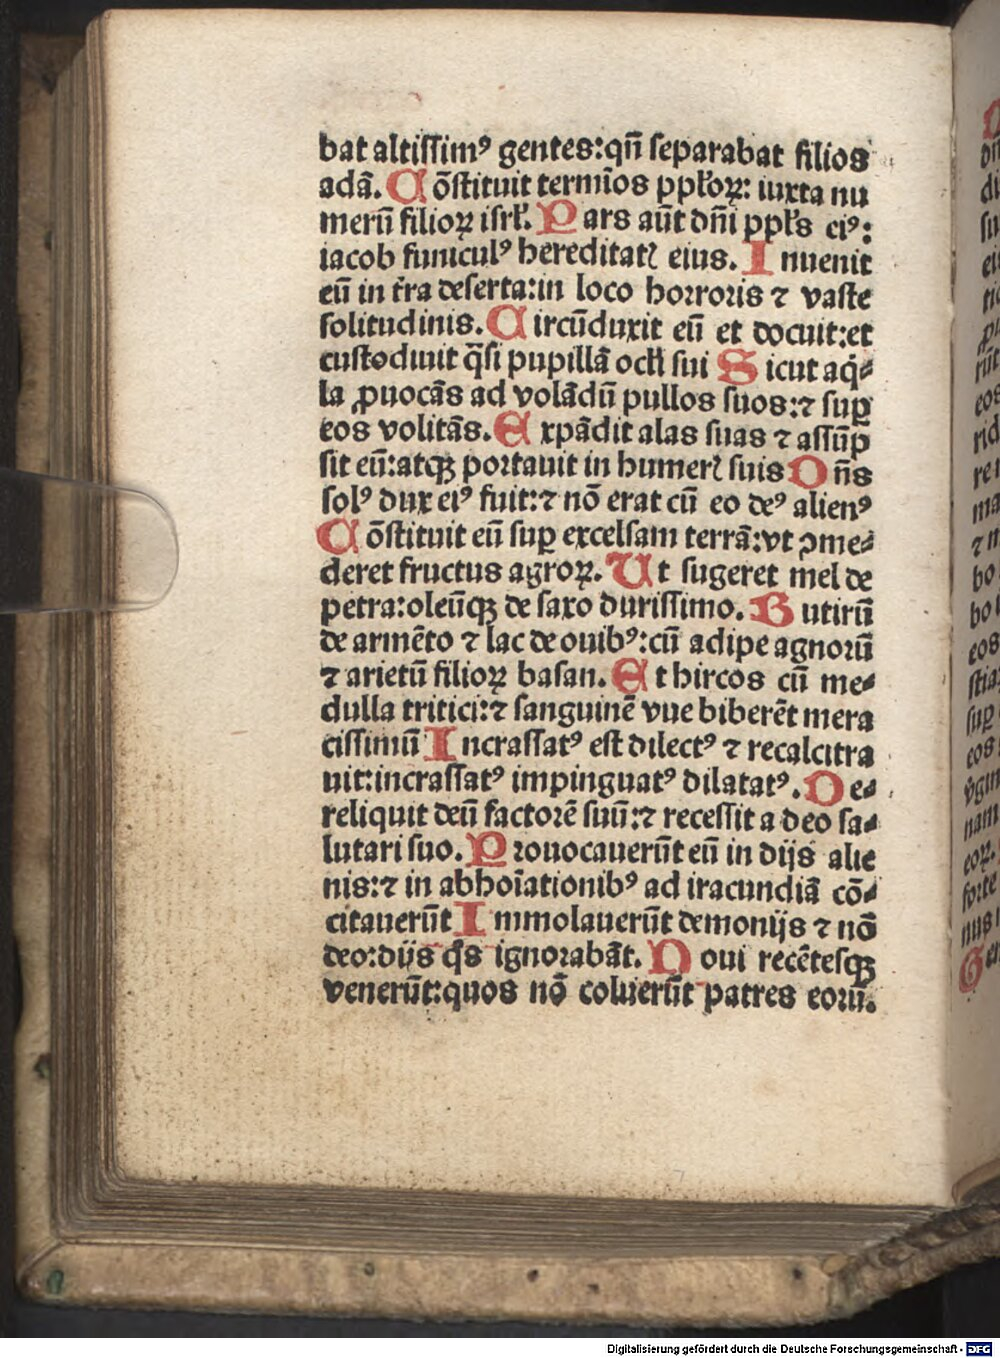 bat altissimꝰ gentes:qn̄ separabat filios
adā. Cōstituit termīos pplōꝝ: iuxta nu
merū filioꝝ isrl̄. Pars aūt dn̄i ppl̄s eiꝰ:
iacob funiculꝰ hereditatꝭ eius. Inuenit
eū in tr̄a deserta:in loco horroris ⁊ vaste
solitudinis. Circūduxit eū et docuit:et
custodiuit q̄si pupillā oclī sui Sicut aq̇⸗
la ꝓuocās ad volādū pullos suos:⁊ suꝑ
eos volitās. Expādit alas suas ⁊ assūp
sit eū:atqꝫ portauit in humerꝭ suis Dn̄s
solꝰ dux eiꝰ fuit:⁊ nō erat cū eo deꝰ alienꝰ
Cōstituit eū suꝑ excelsam terrā:vt ꝯme⸗
deret fructus agroꝝ. Ut sugeret mel de
petra:oleūqꝫ de saxo durissimo. Butirū
de armēto ⁊ lac de ouibꝰ:cū adipe agnorū
⁊ arietū filioꝝ basan. Et hircos cū me⸗
dulla tritici:⁊ sanguinē vue biberēt mera
cissimū Incrassatꝰ est dilectꝰ ⁊ recalcitra
uit:incrassatꝰ impinguatꝰ dilatatꝰ. De⸗
reliquit deū factorē suū:⁊ recessit a deo sa⸗
lutari suo. Prouocauerūt eū in dijs alie
nis:⁊ in abhoīationibꝰ ad iracundiā cō⸗
citauerūt Immolauerūt demonijs ⁊ nō
deo:dijs qͦs ignorabāt. Noui recētesqꝫ
venerūt:quos nō coluerūt patres eorū.
Digitalisierung gefördert durch die Deutsche Forschungsgemeinschaft - DFG